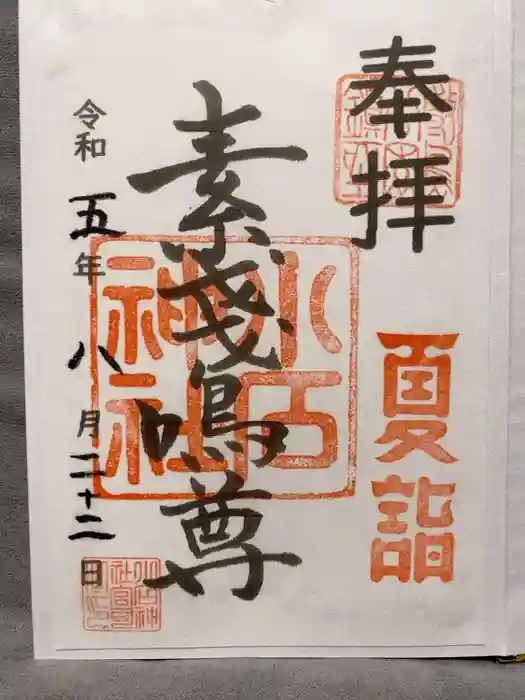 奉拝
夏詣
素戔嗚尊
小石神社
令和五年八月二十二日